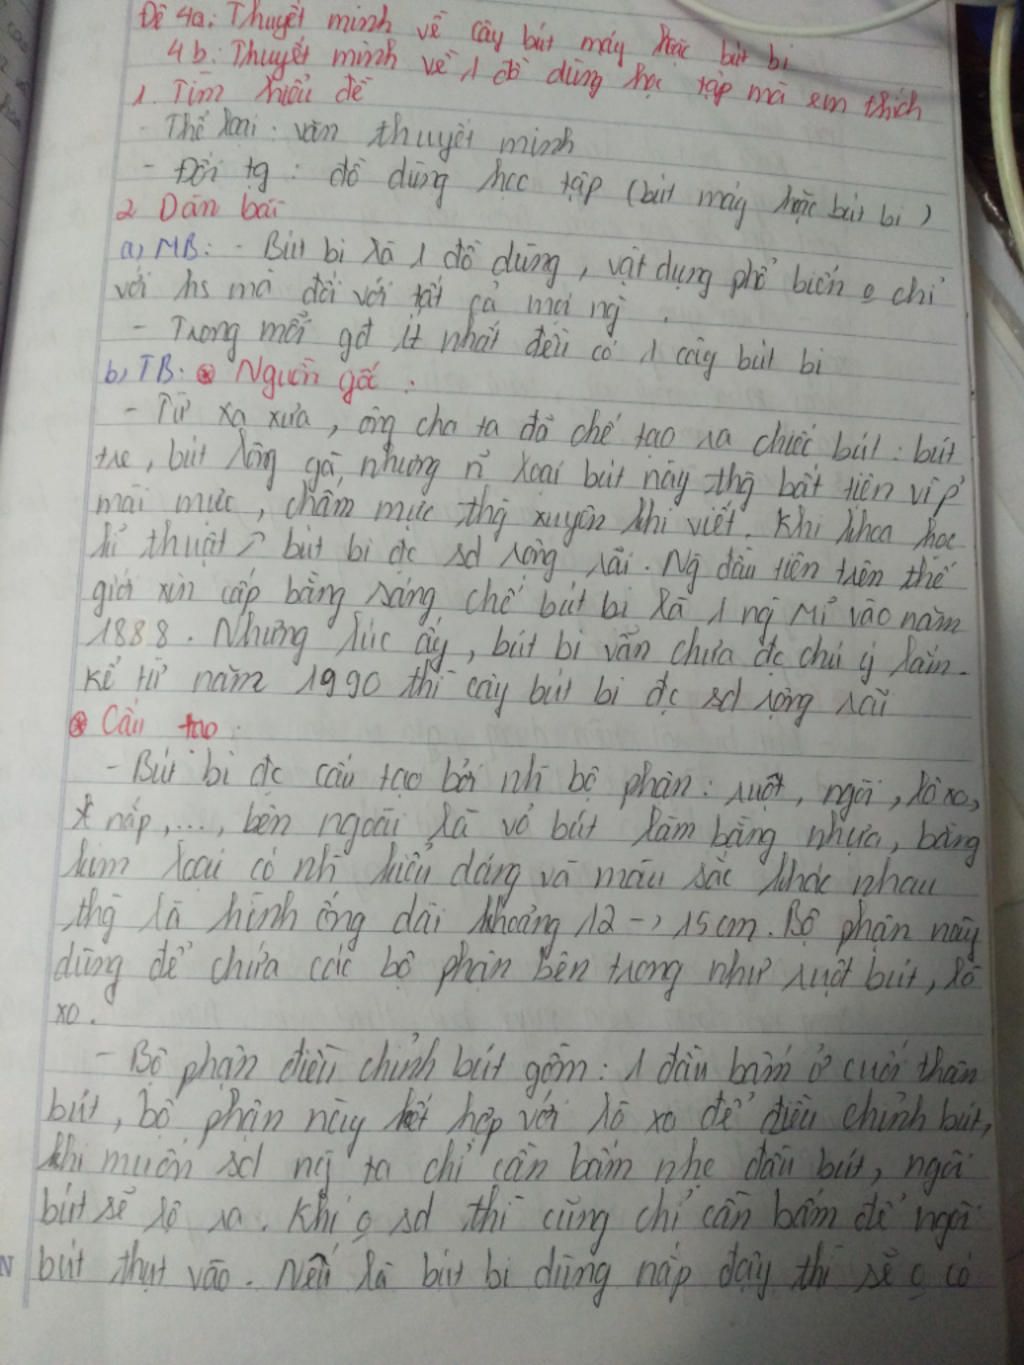 Đề 4a: Thuyết minh về cây bút máy hoặc bút bi
4b: Thuyết minh về 1 đồ dùng học tập mà em thích
1. Tìm hiểu đề
- Thể loại: văn thuyết minh
- Đối tg: đồ dùng học tập (bút máy hoặc bút bi)
2 Dàn bài
a, MB: - Bút bi là 1 đồ dùng, vật dụng phổ biến o chỉ
với hs mà đối với tất cả mọi ng.
- Trong mỗi gđ ít nhất đều có 1 cây bút bi
b, TB: * Nguồn gốc:
- Từ xa xưa, ông cha ta đã chế tạo ra chiếc bút: bút
tre, bút lông gà, nhưng n~ loại bút này thg bất tiện vì p'
mài mực, chấm mực thg xuyên khi viết. Khi khoa học
kĩ thuật > bút bi đc sd rộng rãi. Ng đầu tiên trên thế
giới xin cấp bằng sáng chế bút bi là 1 ng Mĩ vào năm
1888. Nhưng lúc ấy, bút bi vẫn chưa đc chú ý lắm.
Kể từ năm 1990 thì cây bút bi đc sd rộng rãi
* Cấu tạo:
- Bút bi đc cấu tạo bởi nh` bộ phận: ruột, ngòi, lò xo,
nắp,..., bên ngoài là vỏ bút làm bằng nhựa, bằng
kim loại có nh` kiểu dáng và màu sắc khác nhau
thg là hình ống dài khoảng 12 -> 15cm. Bộ phận này
dùng để chứa các bộ phận bên trong như ruột bút, lò
xo.
- Bộ phận điều chỉnh bút gồm: 1 đầu bấm ở cuối thân
bút, bộ phận này kết hợp với lò xo để điều chỉnh bút,
khi muốn sd ng ta chỉ cần bấm nhẹ đầu bút, ngòi
bút sẽ lộ ra. Khi o sd thì cũng chỉ cần bấm để ngòi
bút thụt vào. Nếu là bút bi dùng nắp đậy thì sẽ o có